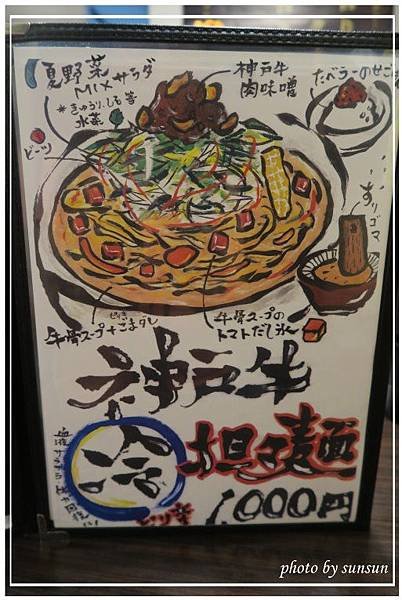 夏野菜
MIXサラダ
*きゅうり、しそ等
水菜
ビーツ
神戸牛
肉味噌
すりゴマ
牛骨スープ+ごまダレ
牛骨スープの
トマトだし氷
神戸牛
冷
担々麺
1,000円
photo by sunsun